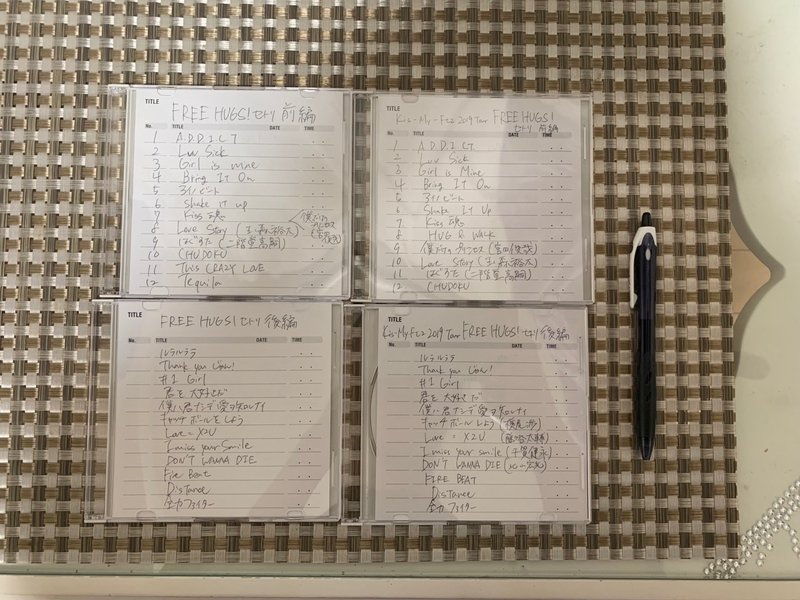 TITLE FREE HUGS! セトリ 前編
No. TITLE DATE TIME
1 A.D.D.I.C.T
2 Luv Sick
3 Girl is mine
4 Bring It On
5 3インビート
6 Shake It up
7 Kiss魂
8 Love Story (玉森裕太)
9 はぐうた (二階堂高嗣)
10 CHUDOKU
11 This CRAZY LOVE
12 Tequila
TITLE Kis-My-Ft2 2019 Tour FREE HUGS!
セトリ 前編
No. TITLE DATE TIME
1 A.D.D.I.C.T
2 Luv Sick
3 Girl is Mine
4 Bring It On
5 3インビート
6 Shake It Up
7 Kiss魂
8 HUG & WALK
9 (宮田俊哉)
10 Love Story (玉森裕太)
11 はぐうた (二階堂高嗣)
12 CHUDOKU
TITLE FREE HUGS! セトリ 後編
No. TITLE DATE TIME
ルラルララ
Thank you じゃん!
#1 Girl
君を大好きだ
僕ハ君ナシデ愛ヲ知レナイ
キャッチボールをしよう
Love = X2U
I miss your smile
DON'T WANNA DIE
Fire Beat
DisTance
全力ファイター
TITLE Kis-My-Ft2 2019 Tour FREE HUGS! セトリ 後編
No. TITLE DATE TIME
ルラルララ
Thank you じゃん!
#1 Girl
君を大好きだ
僕ハ君ナシデ愛ヲ知レナイ
キャッチボールしよう (横尾渉)
Love = X2U (藤ヶ谷太輔)
I miss your smile (千賀健永)
DON'T WANNA DIE (北山宏光)
FIRE BEAT
DisTance
全力ファイター